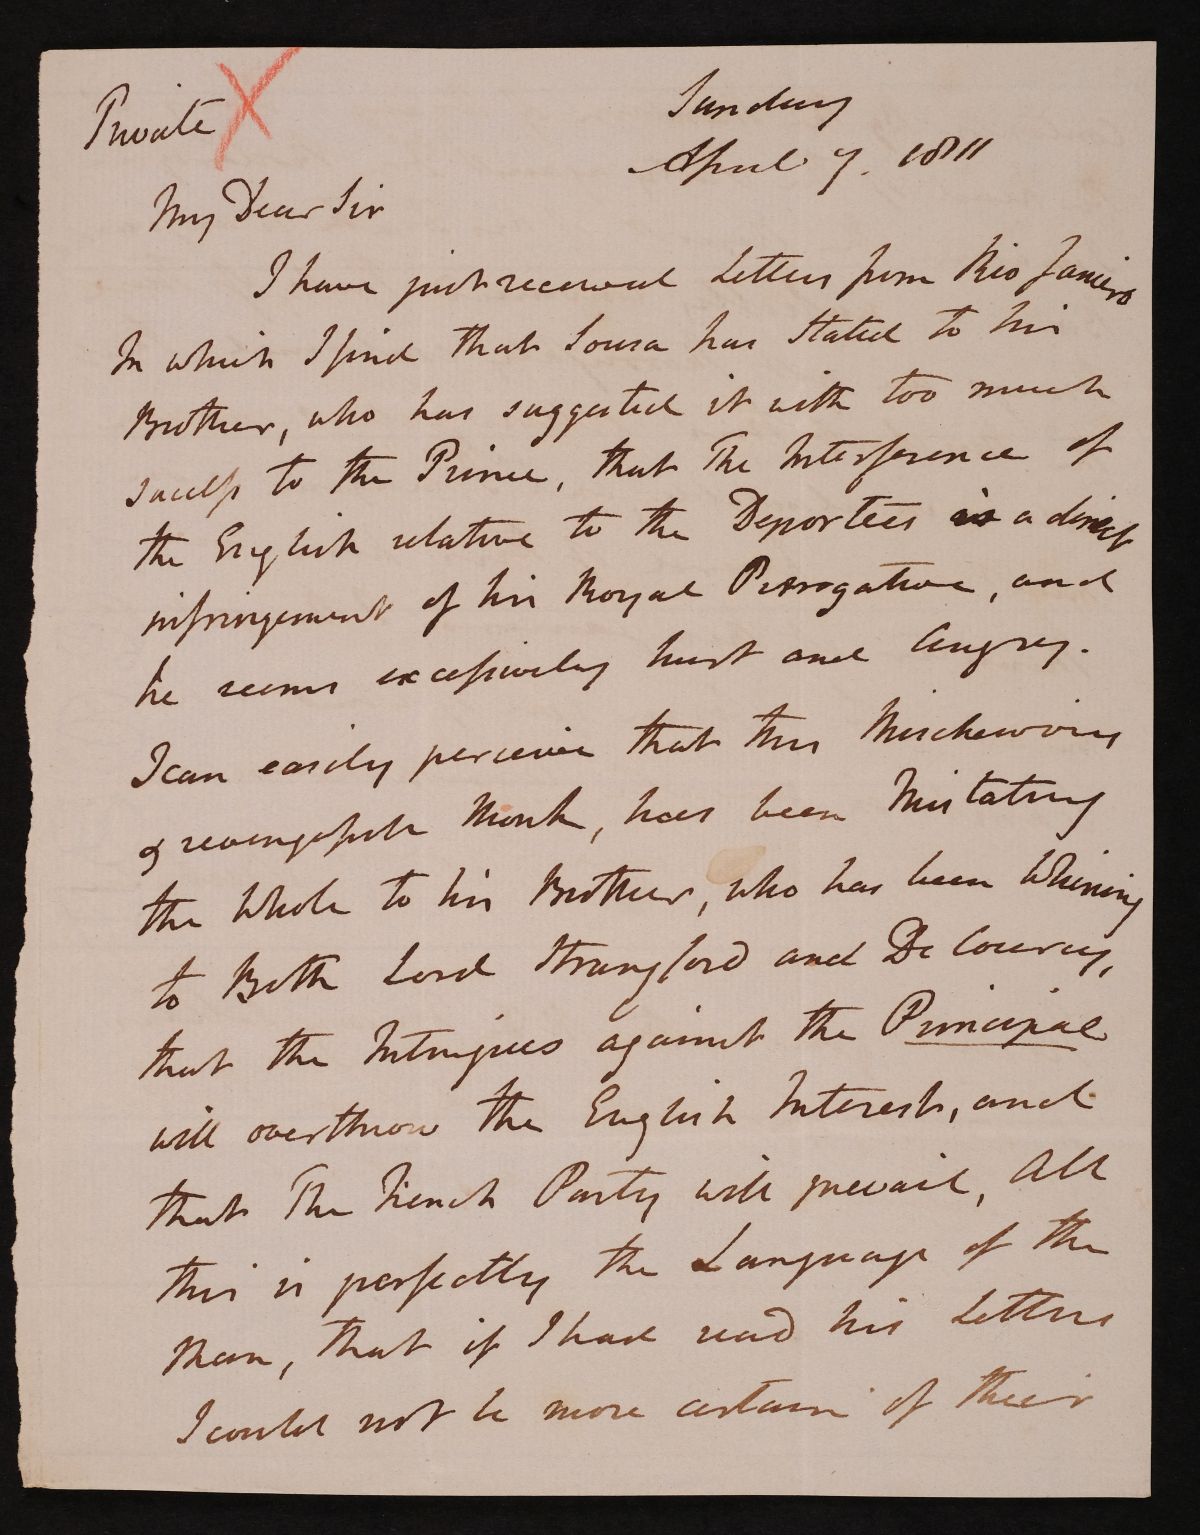 Private
Sunday
April 7. 1811
My Dear Sir
I have just received Letters from Rio Janeiro
In which I find that Sousa has Stated to his
Brother, who has suggested it with too much
success to the Prince, that The Interference of
the English relative to the Deportees is a direct
infringement of his Royal Prerogative, and
he seems excessively hurt and Angry.
I can easily perceive that this Mischevious
& revengefull Monk, has been Mistating
the Whole to his Brother, who has been Whining
to Both Lord Strangford and De Courcy,
that the Intrigues against the Principal
will overthrow the English Interest, and
that The French Party will prevail, All
this is perfectly the Language of the
Man, that if I had read his Letters
I could not be more certain of their